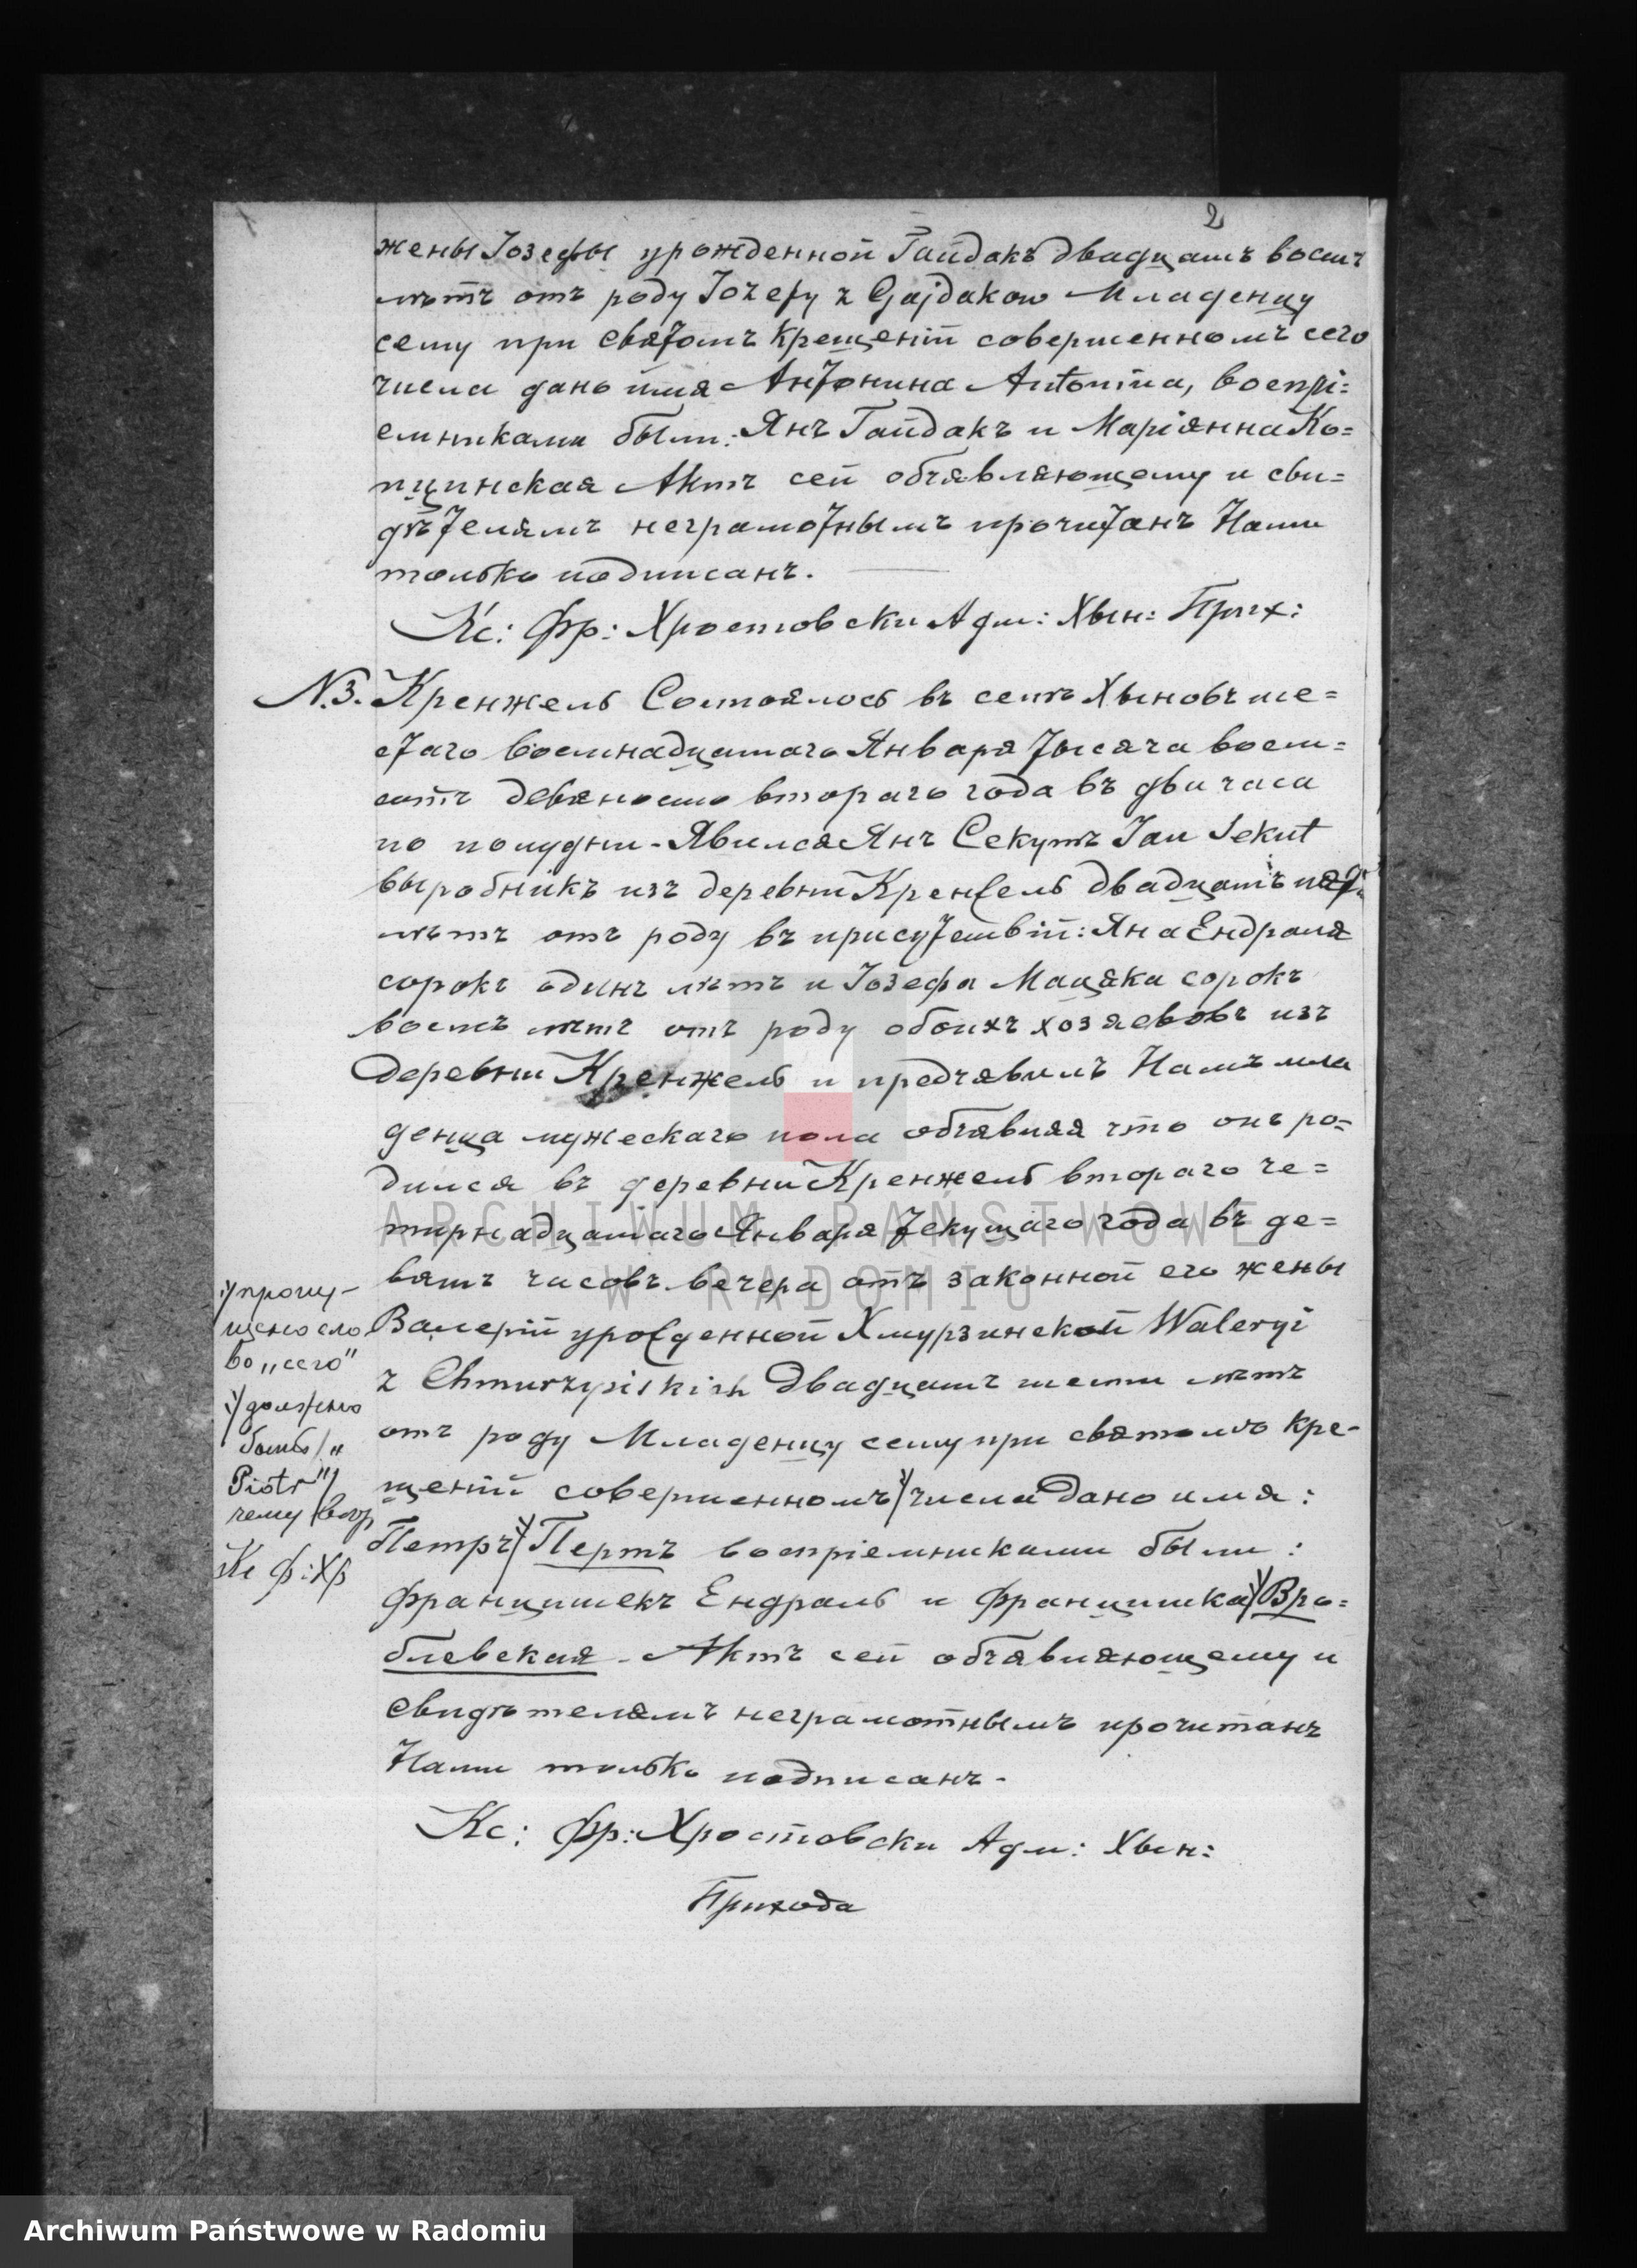 2
жены Іозефы урожденной Гайдакъ двадцать восмъ
лѣтъ отъ роду Jozefy z Gajdakow Младенцу
сему при святомъ крещеніи совершенномъ сего
числа дано имя Антонина Antonina, воспрі=
емниками были: Янъ Гайдакъ и Маріянна Ко=
пцинская Актъ сей объявляющему и сви=
дѣтелямъ неграмотнымъ прочитанъ Нами
только подписанъ.
Кс: Фр: Хростовски Адм: Хын: Прих:
N.3. Кренжель Состоялось въ селѣ Хыновѣ ше=
стаго восмнадцатаго Января тысяча восм=
сотъ девяносто втораго года въ два часа
по полудни - Явился Янъ Секутъ Jan Sekut
выробникъ изъ деревни Кренжель двадцать пять
лѣтъ отъ роду въ присутствіи: Яна Ендраля
сорокъ одинъ лѣтъ и Іозефа Мацяка сорокъ
восмъ лѣтъ отъ роду обоихъ хозяевовъ изъ
деревни Кренжель и предъявилъ Намъ мла
денца мужескаго пола объявляя что онъ ро=
дился въ деревни Кренжель втораго че=
тырнадцатаго Января текущаго года въ де=
вять часовъ вечера отъ законной его жены
Валеріи урожденной Хмурзинской Waleryi
z Chmurzyńskich двадцать шести лѣтъ
отъ роду Младенцу сему при святомъ кре-
щеніи совершенномъ числа дано имя:
Петръ Пертъ воспріемниками были:
Францишекъ Ендраль и Францишка Вро=
блевская - Актъ сей объявляющему и
свидѣтелямъ неграмотнымъ прочитанъ
Нами только подписанъ-
Кс: Фр: Хростовски Адм: Хын:
Прихода
пропу-
щено сло
во „сего"
должно
быть „
Piotr"
Кс Ф: Хр
ARCHIWUM PAŃSTWOWE
W RADOMIU
Archiwum Państwowe w Radomiu